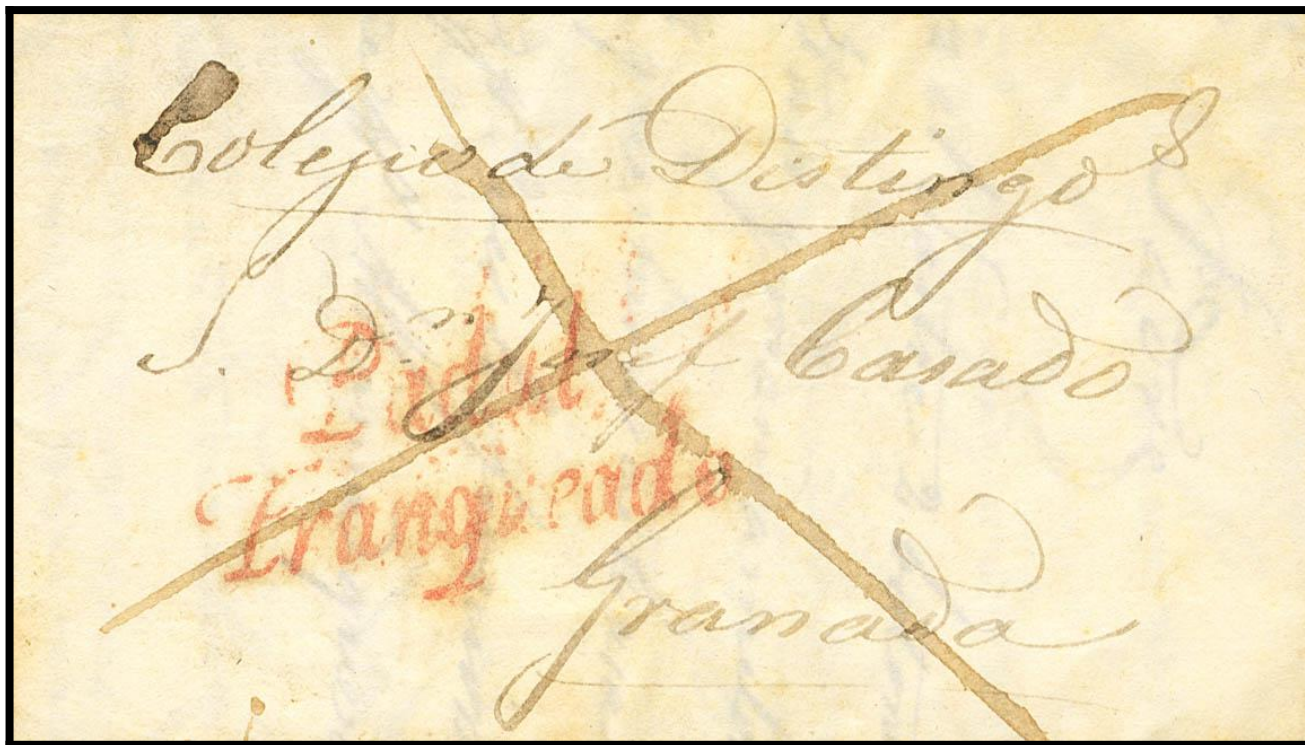 Colegio de Disting.os
S. D.n José Casado
Padul.
Franqueado
Granada